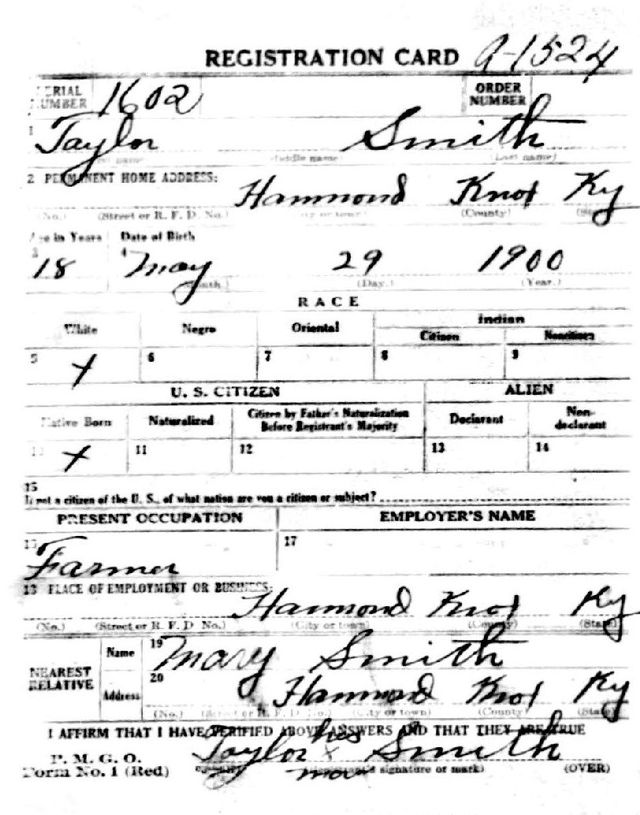 REGISTRATION CARD A-1524
SERIAL NUMBER 1602 ORDER NUMBER
1 Taylor Smith
(Middle name) (Last name)
2 PERMANENT HOME ADDRESS: Hammond Knox Ky
(No.) (Street or R. F. D. No.) (City or town) (County)
Age in Years Date of Birth
3 18 4 May 29 1900
(Month.) (Day.) (Year.)
RACE
White Negro Oriental Indian
Citizen Noncitizen
5 X 6 7 8 9
U. S. CITIZEN ALIEN
Native Born Naturalized Citizen by Father's Naturalization Before Registrant's Majority Declarant Non-declarant
X 11 12 13 14
15
If not a citizen of the U. S., of what nation are you a citizen or subject?
PRESENT OCCUPATION EMPLOYER'S NAME
Farmer 17
18 PLACE OF EMPLOYMENT OR BUSINESS: Hammond Knox Ky
(No.) (Street or R. F. D. No.) (City or town) (County) (State)
NEAREST RELATIVE Name 19 Mary Smith
Address 20 Hammond Knox Ky
(No.) (Street or R. F. D. No.) (City or town) (County) (State)
I AFFIRM THAT I HAVE VERIFIED ABOVE ANSWERS AND THAT THEY ARE TRUE
P. M. G. O. Taylor his x mark Smith
Form No. 1 (Red) signature or mark) (OVER)